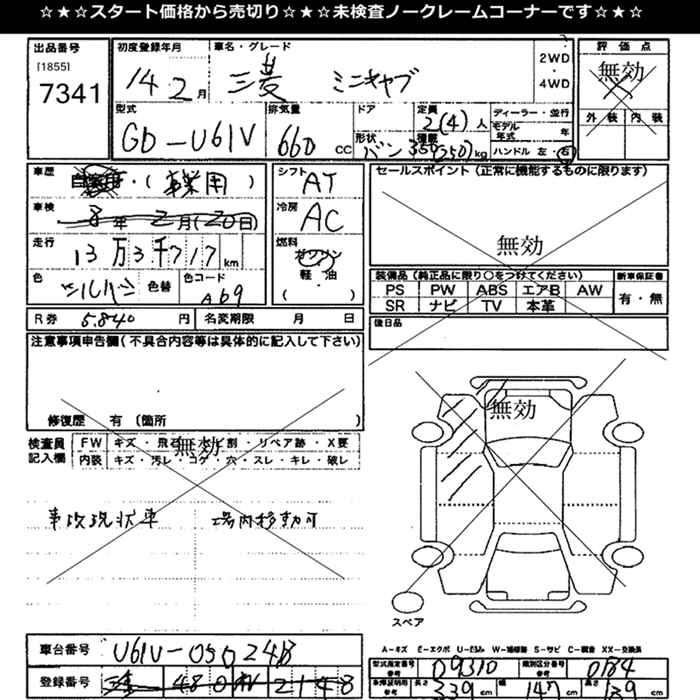 ☆★☆★スタート価格から売切り☆★☆★未検査ノークレームコーナーです☆★☆
出品番号
[1855]
7341
初度登録年月
14 2月
車名・グレード
三菱 ミニキャブ
2WD
・
4WD
評価点
無効
外装 内装
型式
GD-U61V
排気量
660 CC
ドア
形状
バン
定員
2(4)人
積載
350(250)kg
ディーラー・並行
モデル年式 年
ハンドル 左・右
車歴
自家用・(事業用)
車検
8年 2月(20日)
走行
13万3千717km
色
シルバー 色替
色コード
A69
シフト
AT
冷房
AC
燃料
ガソリン
軽・油
( )
セールスポイント(正常に機能するものに限ります)
無効
装備品(純正品に限り○をつけてください)
PS PW ABS エアB AW
SR ナビ TV 本革
新車保証書
有・無
後日品
R券 5.840円
名変期限 月 日
注意事項申告欄(不具合内容等は具体的に記入して下さい)
修復歴 有(箇所 )
検査員記入欄
FW キズ・飛石・ヒビ割・リペア跡・X要
内装 キズ・汚レ・コゲ・穴・スレ・キレ・破レ
無効
事故現状車 場内移動可
無効
スペア
車台番号 U61V-050248
登録番号
A-キズ E-エクボ
型式指定番号 09310
類別区分番号
長さ 339cm
幅 147cm
高さ